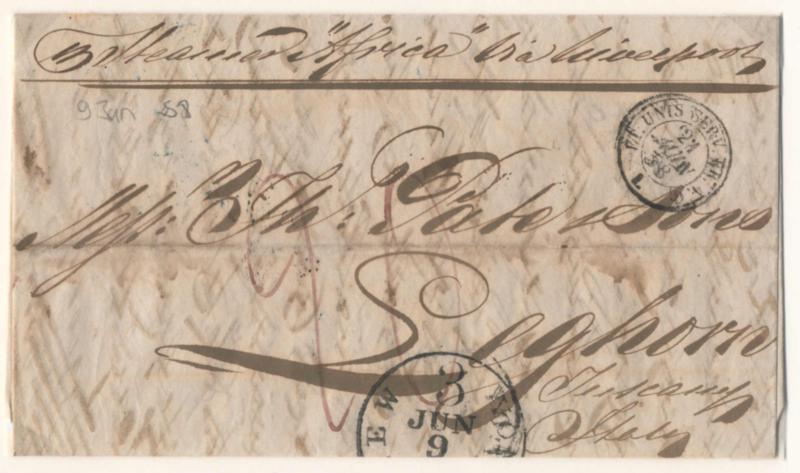 Steamer "Africa" via Liverpool
9 Jun 58
ET. UNIS SERV. BR. A.C.
21 JUIN 58
Messrs: Th: Pate & Sons
Leghorn
Tuscany
Italy
NEW YORK
3
JUN
9